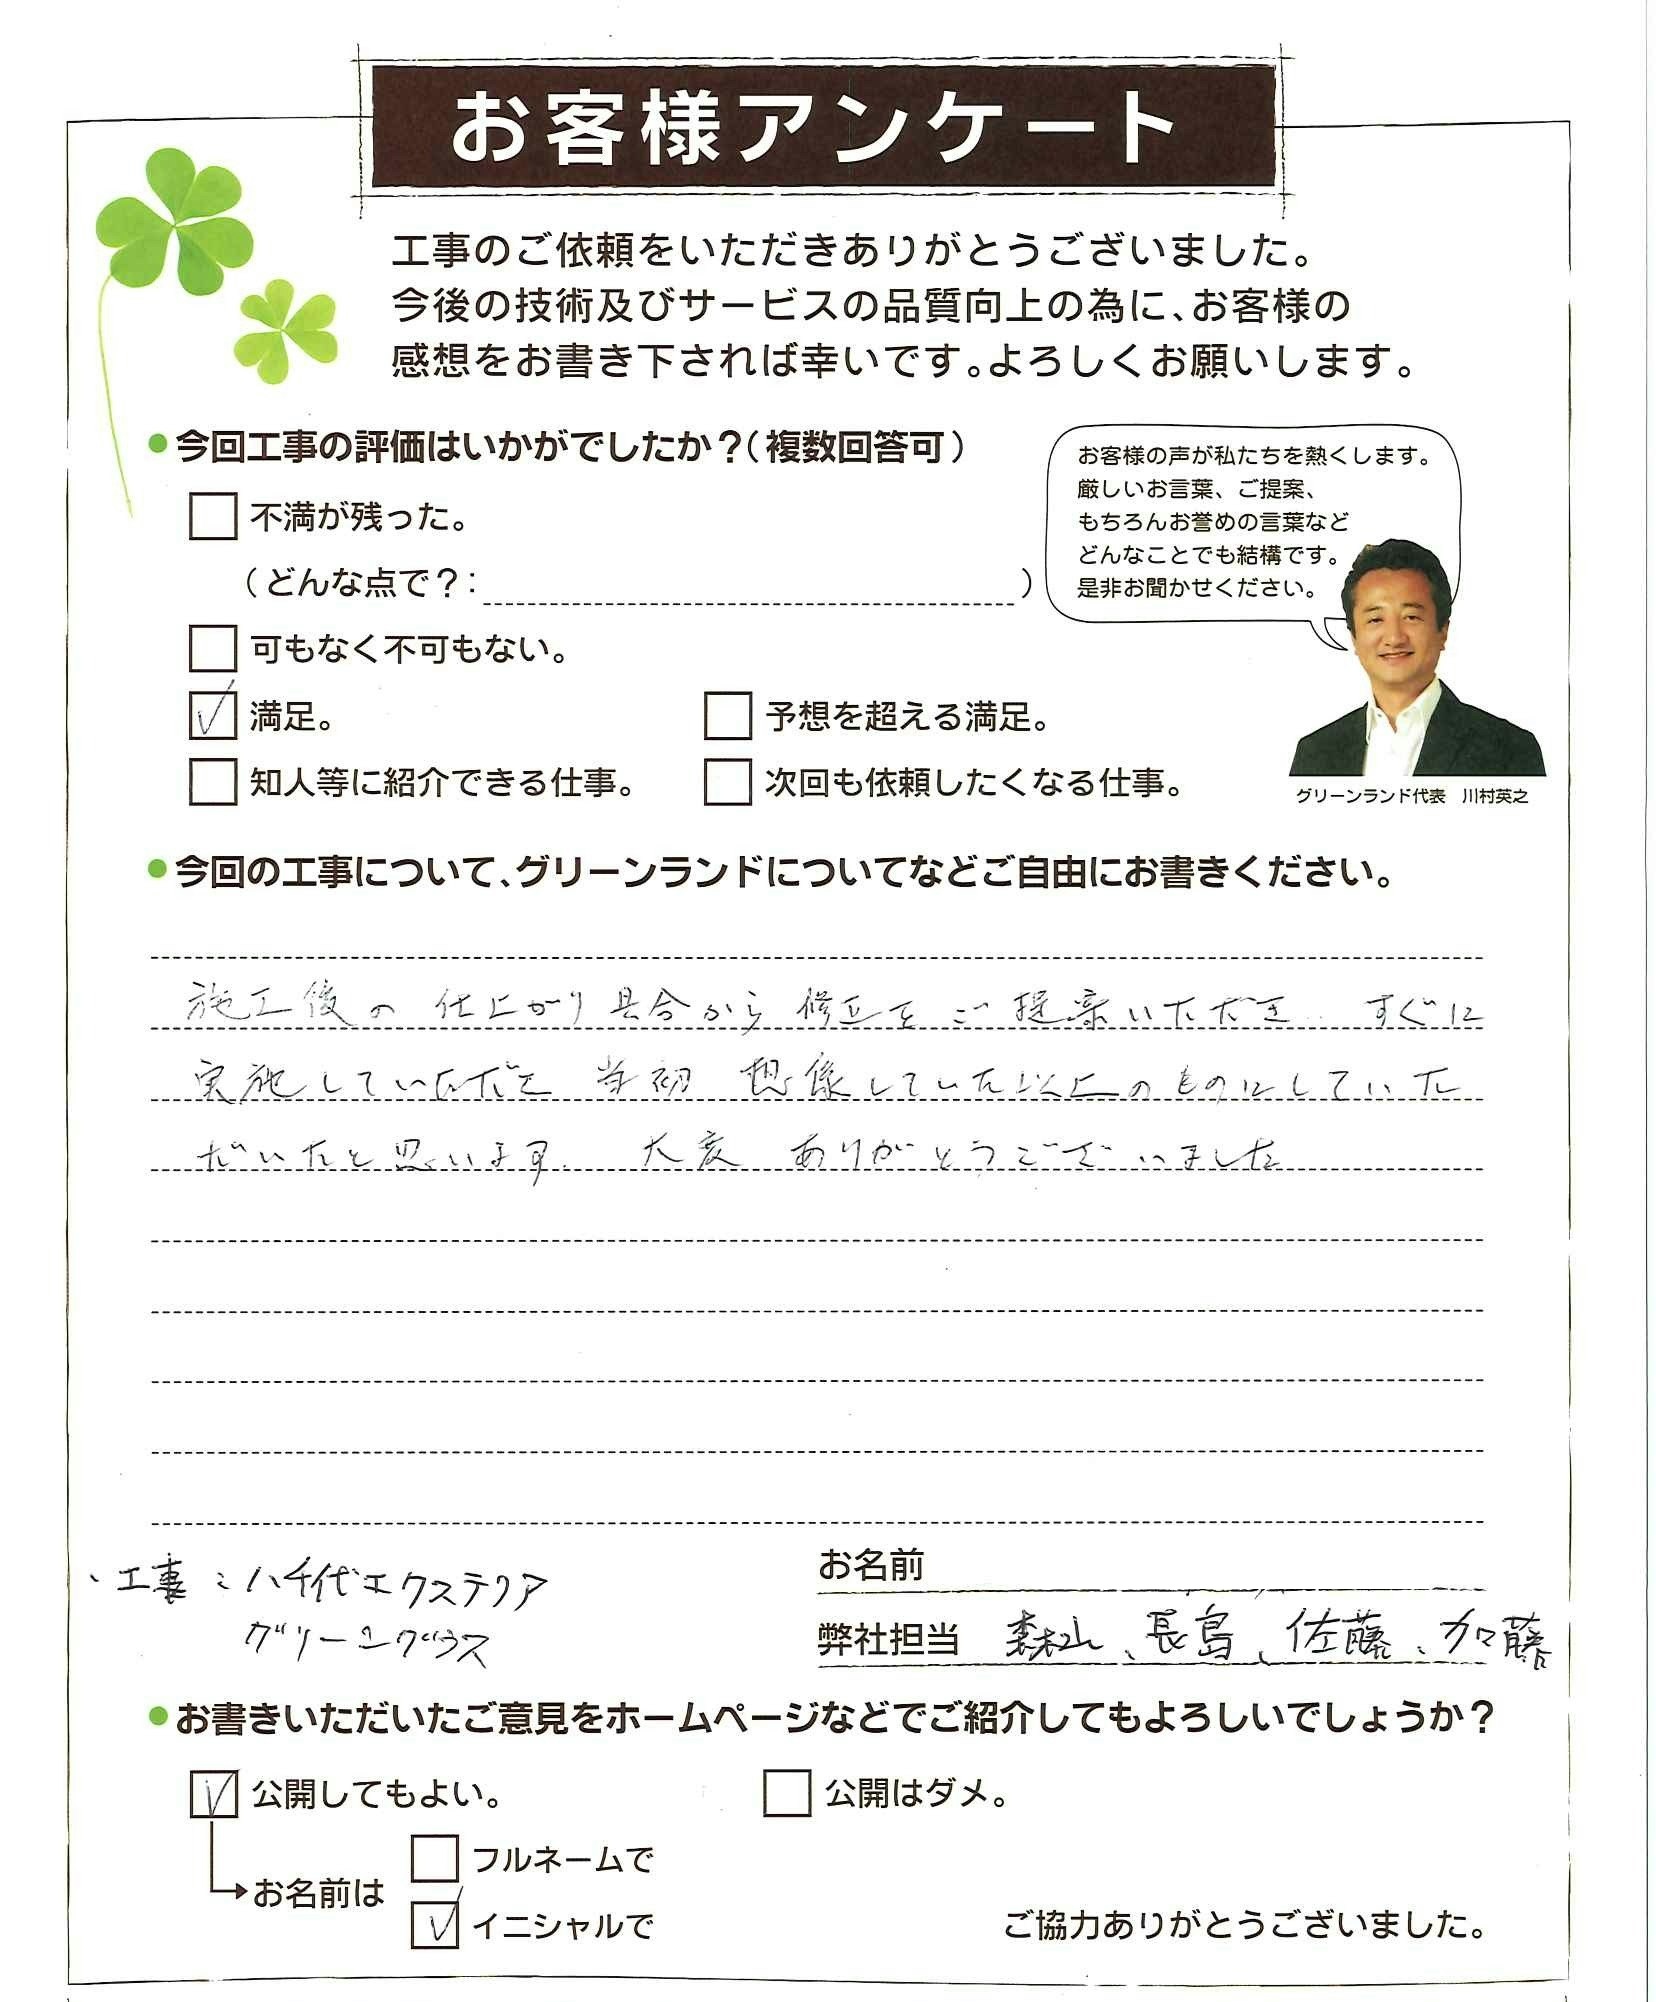 お客様アンケート
工事のご依頼をいただきありがとうございました。
今後の技術及びサービスの品質向上の為に、お客様の
感想をお書き下されば幸いです。よろしくお願いします。
●今回工事の評価はいかがでしたか？（複数回答可）
不満が残った。
（どんな点で？：　　　）
可もなく不可もない。
満足。
予想を超える満足。
知人等に紹介できる仕事。
次回も依頼したくなる仕事。
お客様の声が私たちを熱くします。
厳しいお言葉、ご提案、
もちろんお誉めの言葉など
どんなことでも結構です。
是非お聞かせください。
グリーンランド代表　川村英之
●今回の工事について、グリーンランドについてなどご自由にお書きください。
施工後の 仕上がり具合から 修正を ご提案いただき すぐに
実施していただき 当初 想像していた以上のものにしていた
だいたと思います. 大変 ありがとうございました
、工事：八千代エクステリア
グリーングラス
お名前
弊社担当　森山、長島、佐藤、加藤
●お書きいただいたご意見をホームページなどでご紹介してもよろしいでしょうか？
公開してもよい。
公開はダメ。
お名前は
フルネームで
イニシャルで
ご協力ありがとうございました。